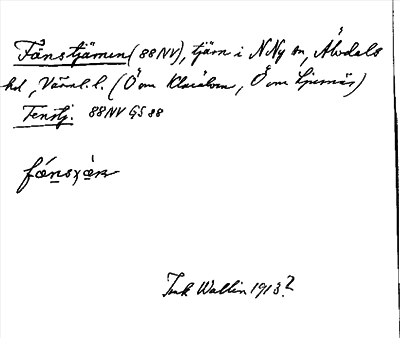 Fånstjärnen (88NV), tjärn i N Ny sn, Älvdals
hd, Värml. l. (Ö om Klarälven, Ö om Ljusnäs)
Tenstj. 88NV GS 88
Ink Wallin 1913?